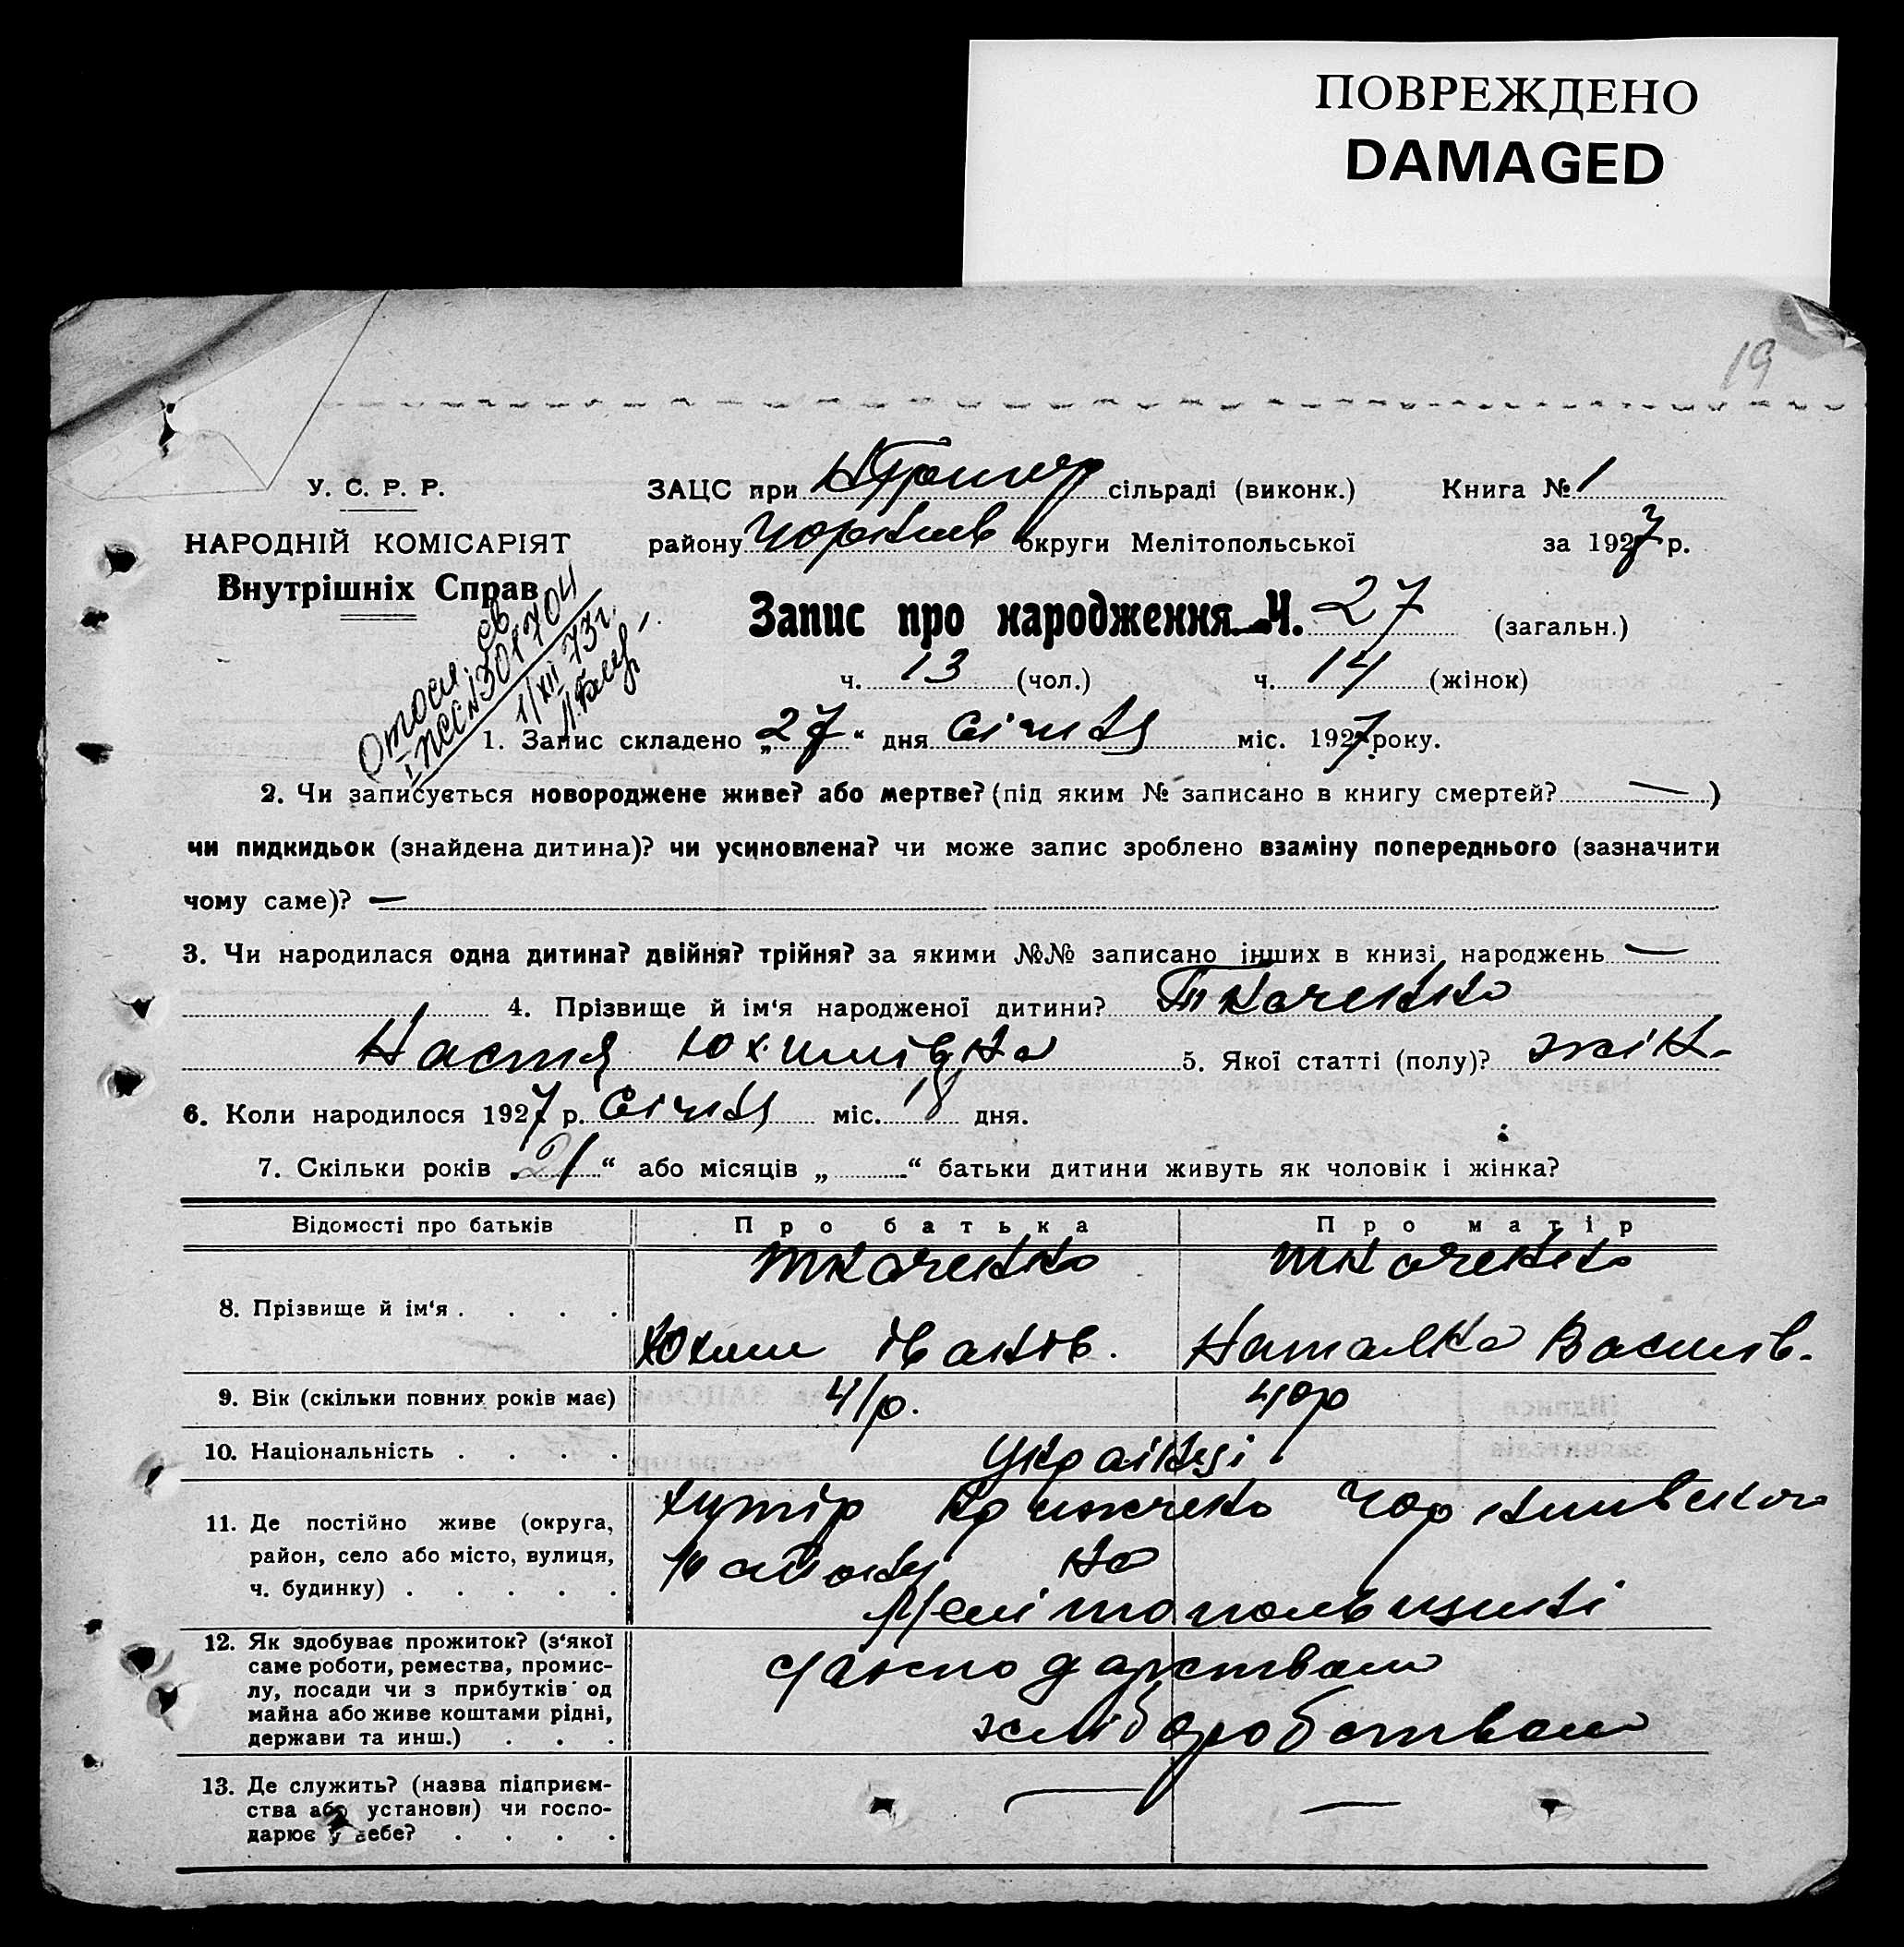 ПОВРЕЖДЕНО
DAMAGED
19
У. С. Р. Р.
НАРОДНІЙ КОМІСАРІЯТ
Внутрішніх Справ
ЗАЦС при сільраді (виконк.) Книга № 1
району округи Мелітопольської за 1927 р.
Запис про народження Ч. 27 (загальн.)
ч. 13 (чол.) ч. 14 (жінок)
1/XII 73 г.
1. Запис складено „27“ дня січня міс. 1927 року.
2. Чи записується новороджене живе? або мертве? (під яким № записано в книгу смертей? — )
чи пидкидьок (знайдена дитина)? чи усиновлена? чи може запис зроблено взаміну попереднього (зазначити
чому саме)? —
3. Чи народилася одна дитина? двійня? трійня? за якими №№ записано інших в книзі народжень —
4. Прізвище й ім‘я народженої дитини? Ткаченко
Настя Юхимівна 5. Якої статті (полу)? жін.
6. Коли народилося 1927 р. Січня міс. 18 дня.
7. Скільки років „21“ або місяців „ “ батьки дитини живуть як чоловік і жінка?
Відомості про батьків Про батька Про матір
8. Прізвище й ім‘я . . . . Ткаченко Ткаченко
Юхим Іванів. Наталка Василів.
9. Вік (скільки повних років має) 41р. 40р
10. Національність . . . . Українці
11. Де постійно живе (округа,
район, село або місто, вулиця,
ч. будинку) . . . . .
хутір
району на
Мелітопольщині
12. Як здобуває прожиток? (з‘якої
саме роботи, ремества, промис-
лу, посади чи з прибутків од
майна або живе коштами рідні,
держави та инш.) . . .
хліборобством
13. Де служить? (назва підприєм-
ства або установи) чи госпо-
дарює у себе? . . . . — —